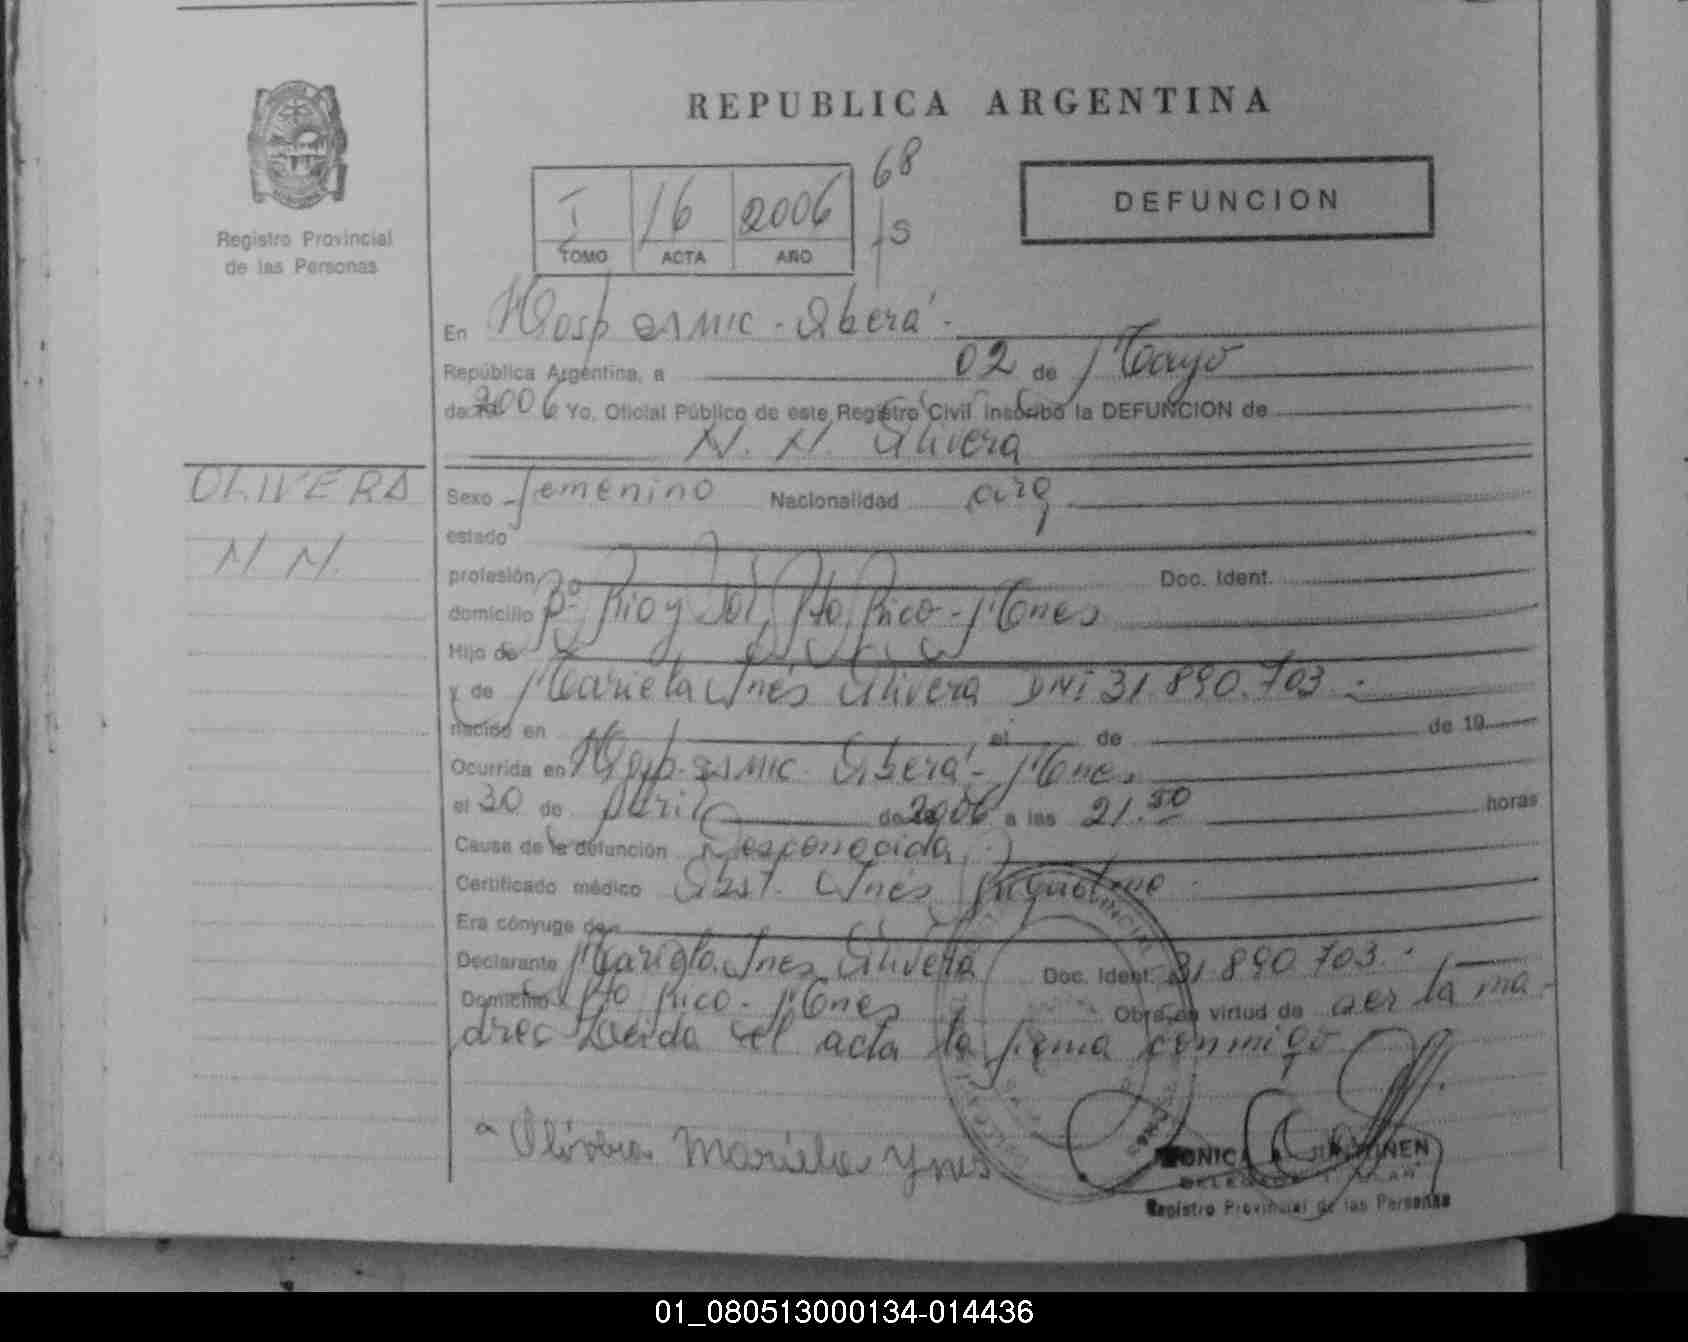 REPUBLICA ARGENTINA
Registro Provincial
de las Personas
I 16 2006
TOMO ACTA AÑO
68
15
DEFUNCION
En Hosp Samic - Oberá -
República Argentina, a 02 de Mayo
de 2006 Yo, Oficial Público de este Registro Civil inscribo la DEFUNCION de
N. N. Olivera
OLIVERA
N N.
Sexo femenino Nacionalidad arg
estado
profesión Doc. Ident.
domicilio Bº Rio y Sol, Pto Rico - Mones
Hijo de
y de Mariela Inés Olivera DNI 31.890.703 -
nacido en el de de 19
Ocurrida en Hosp. Samic Oberá - Mones.
el 30 de Abril de 2006 a las 21.50 horas
Causa de la defunción Desconocida
Certificado médico Obst. Inés
Era cónyuge de
Declarante Mariela Ines Olivera Doc. Ident. 31.890.703.
Domicilio Pto Rico - Mones Obra en virtud de ser la ma
dre Leida el acta la firma conmigo
Olivera Mariela Ynes
Registro Provincial de las Personas
01_080513000134-014436